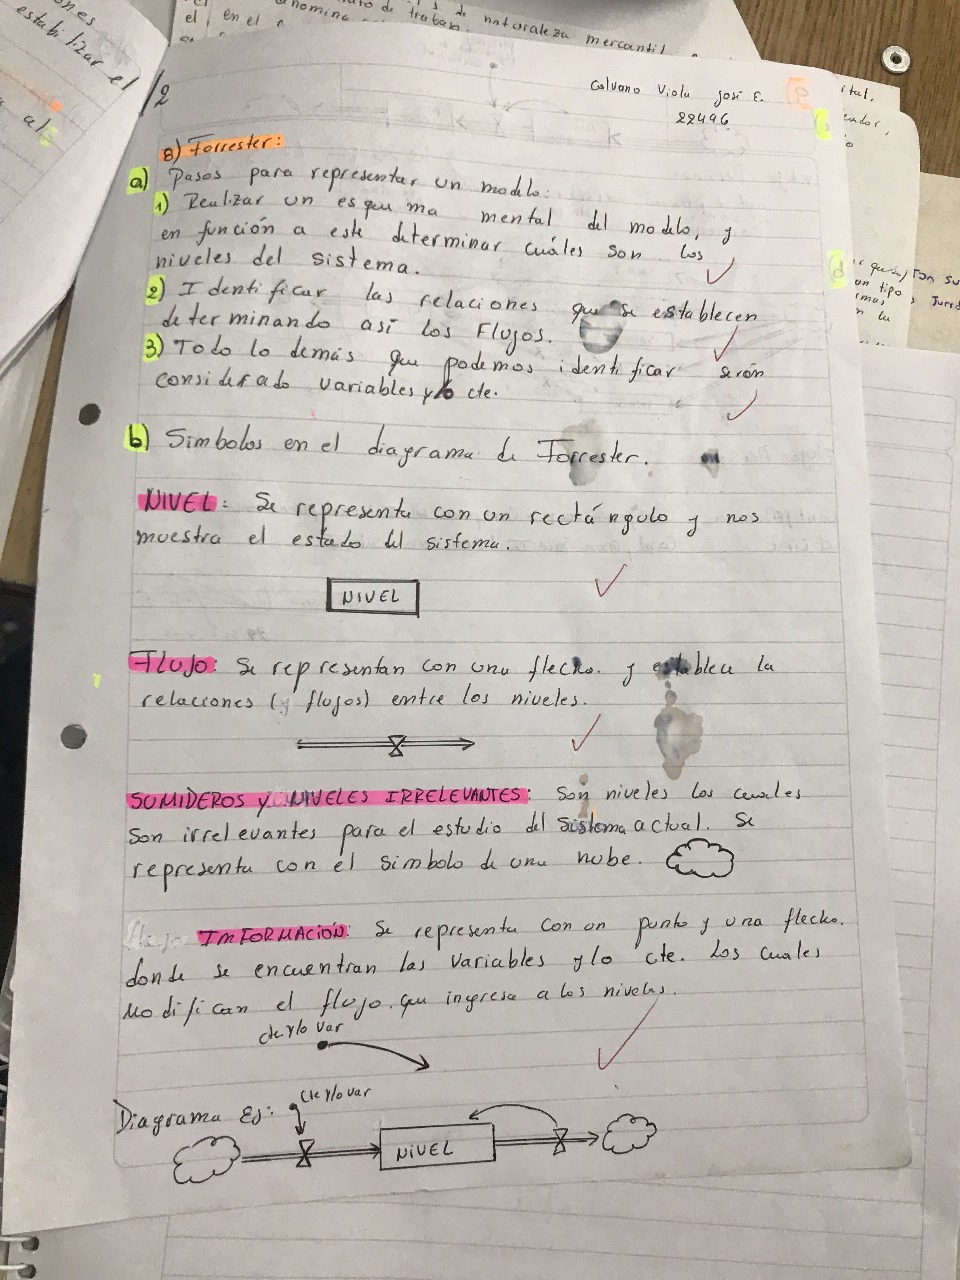 nomina
to de trabajo
s de naturaleza mercantil
el, en el
ones
estabilizar el
al
/2
Galvano Viola José E.
22496
8) Forrester:
a) Pasos para representar un modelo:
1) Realizar un esquema mental del modelo, y
en función a este determinar cuáles son los
niveles del sistema.
2) Identificar las relaciones que se establecen
determinando así los Flujos.
3) Todo lo demás que podemos identificar serán
considerado variables y/o cte.
b) Simbolos en el diagrama de Forrester.
NIVEL: Se representa con un rectángulo y nos
muestra el estado del sistema.
NIVEL
FLUJO: Se representan con una flecha. y establece la
relaciones (y flujos) entre los niveles.
SUMIDEROS Y NIVELES IRRELEVANTES: Son niveles los cuales
son irrelevantes para el estudio del sistema actual. Se
representa con el simbolo de una nube.
INFORMACIÓN: Se representa con un punto y una flecha.
donde se encuentran las variables y/o cte. Los cuales
Modifican el flujo que ingresa a los niveles.
cte y/o var
Diagrama Ej:
cte y/o var
NIVEL
ital.
endor,
o
d